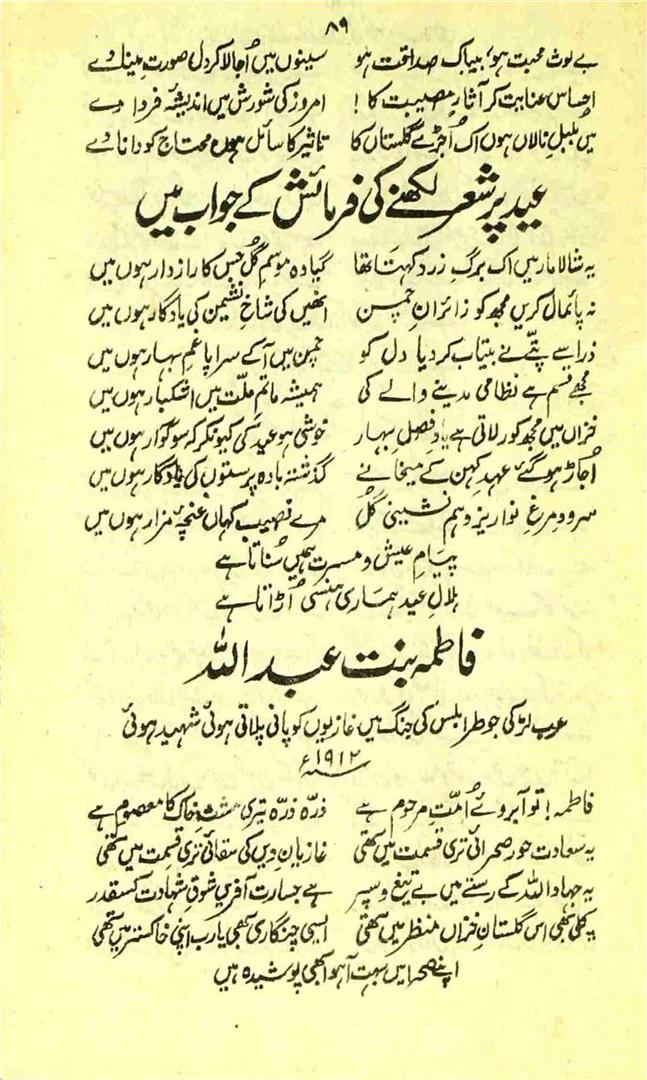 ۸۹
بے لوث محبت ہو، بیباک صداقت ہو سینوں میں اُجالا کر دل صورتِ مینا دے
احساس عنایت کر آثارِ مصیبت کا! امروز کی شورش میں اندیشۂ فردا دے
میں بلبلِ نالاں ہوں اک اُجڑے گلستاں کا تاثیر کا سائل ہوں محتاج کو داتا دے
عید پر شعر لکھنے کی فرمائش کے جواب میں
یہ شالامار میں اک برگِ زرد کہتا تھا گیا وہ موسمِ گُل جس کا رازدار ہوں میں
نہ پائمال کریں مجھ کو زائرانِ چمن انھیں کی شاخِ نشیمن کی یادگار ہوں میں
ذرا سے پتّے نے بیتاب کر دیا دل کو چمن میں آکے سراپا غمِ بہار ہوں میں
مجھے قسم ہے نظامی مدینے والے کی ہمیشہ ماتمِ ملّت میں اشکبار ہوں میں
خزاں میں مجھ کو رلاتی ہے یادِ فصلِ بہار خوشی ہو عید کی کیونکر کہ سوگوار ہوں میں
اُجاڑ ہو گئے عہدِ کہن کے میخانے گذشتہ بادہ پرستوں کی یادگار ہوں میں
سرودِ مرغِ نوا ریز و ہم نشینیِ گُل مرے نصیب کہاں غنچۂ مزار ہوں میں
پیامِ عیش و مسرت ہمیں سُناتا ہے
ہلالِ عید ہماری ہنسی اُڑاتا ہے
فاطمہ بنت عبداللہ
عرب لڑکی جو طرابلس کی جنگ میں غازیوں کو پانی پلاتی ہوئی شہید ہوئی
۱۹۱۲ء
فاطمہ! تو آبروئے اُمّتِ مرحوم ہے ذرّہ ذرّہ تیری مشتِ خاک کا معصوم ہے
یہ سعادت حورِ صحرائی تری قسمت میں تھی غازیانِ دیں کی سقائی تری قسمت میں تھی
یہ جہاد اللہ کے رستے میں بے تیغ و سپر ہے جسارت آفریں شوقِ شہادت کسقدر
یہ کلی بھی اس گلستانِ خزاں منظر میں تھی ایسی چنگاری بھی یارب اپنی خاکستر میں تھی
اپنے صحرا میں بہت آہو ابھی پوشیدہ ہیں